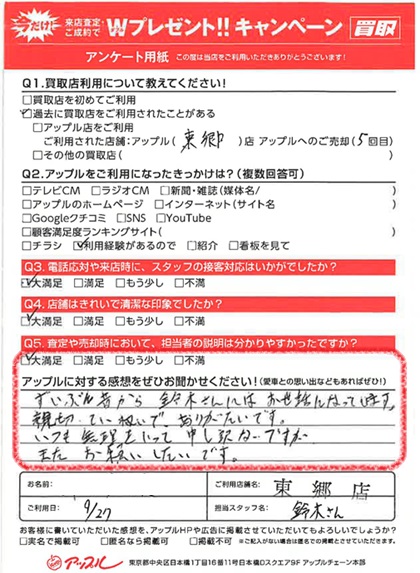 今だけ! 来店査定・ご成約で Wプレゼント!!キャンペーン 買取
アンケート用紙 この度は当店をご利用いただきありがとうございます!
Q1.買取店利用について教えてください!
□買取を初めてご利用
☑過去に買取店をご利用されたことがある
□アップル店をご利用
ご利用された店舗:アップル(東郷)店 アップルへのご売却(5回目)
□その他の買取店( )
Q2.アップルをご利用になったきっかけは?(複数回答可)
□テレビCM □ラジオCM □新聞・雑誌(媒体名/ )
□アップルのホームページ □インターネット(サイト名 )
□Googleクチコミ □SNS □YouTube
□顧客満足度ランキングサイト( )
□チラシ ☑利用経験があるので □紹介 □看板を見て
Q3.電話応対や来店時に、スタッフの接客対応はいかがでしたか?
☑大満足 □満足 □もう少し □不満
Q4.店舗はきれいで清潔な印象でしたか?
☑大満足 □満足 □もう少し □不満
Q5.査定や売却時において、担当者の説明は分かりやすかったですか?
☑大満足 □満足 □もう少し □不満
アップルに対する感想をぜひお聞かせください!(愛車との思い出などもあればぜひ!)
ずいぶん昔から 鈴木さんには お世話になってます。
親切、てい寧いで、ありがたいです。
いつも無理をいって 申し訳ないですが
また お願いしたいです。
お名前: ご利用店舗名: 東郷店
ご利用日: 9/27 担当スタッフ名: 鈴木さん
お客様に書いていただいた感想を、アップルHPや広告に掲載させていただいてもよろしいでしょうか?
□実名で掲載可 □匿名なら掲載可 □掲載不可 ※ご記入がない場合は匿名での掲載とさせていただきます。
アップル 東京都中央区日本橋1丁目16番11号日本橋Dスクエア9F アップルチェーン本部